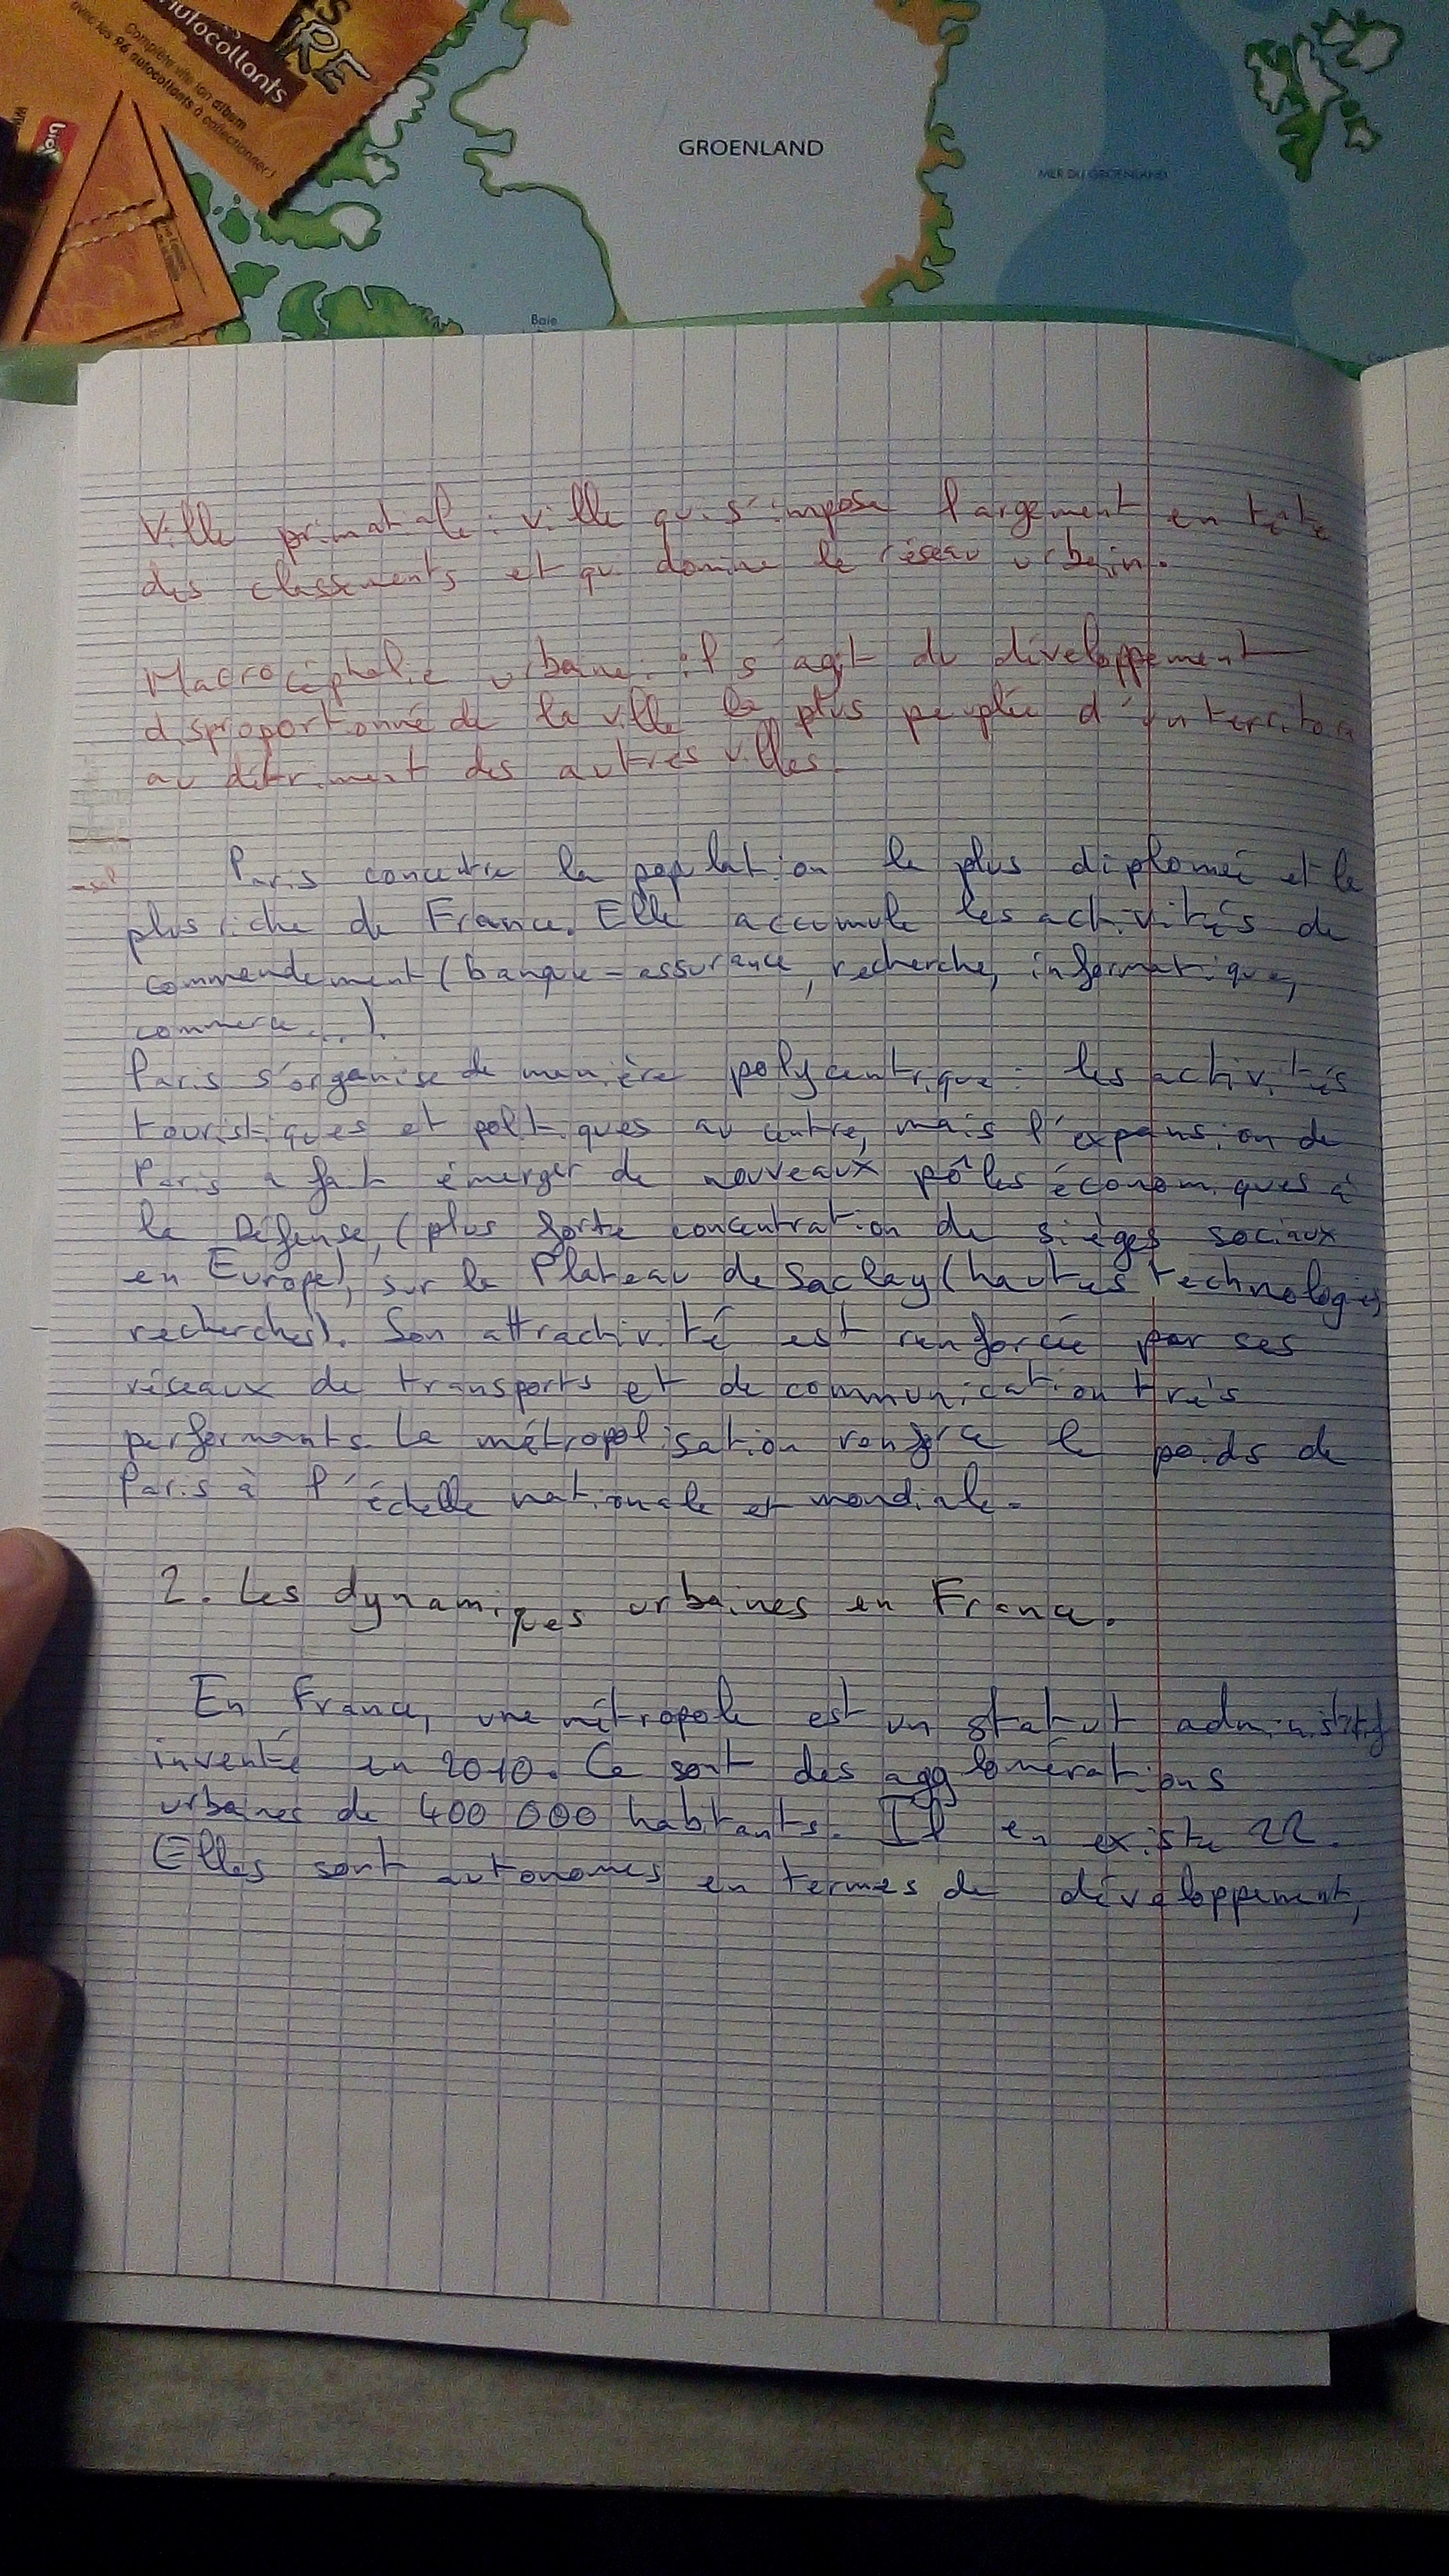 autocollants
Complète vite ton album
avec les 96 autocollants à collectionner !
GROENLAND
MER DU GROENLAND
Baie
Ville primatiale : ville qui s'impose largement en tête
des classements et qui domine le réseau urbain.
Macrocéphalie urbaine : il s'agit du développement
disproportionné de la ville la plus peuplée d'un territoire
au détriment des autres villes.
Paris concentre la population la plus diplomée et la
plus riche de France. Elle accumule les activités de
commendement (banque-assurance, recherche, informatique,
commerce...).
Paris s'organise de manière polycentrique : les activités
touristiques et politiques au centre, mais l'expansion de
Paris a fait émerger de nouveaux pôles économiques à
la Défense, (plus forte concentration de sièges sociaux
en Europe), sur le Plateau de Saclay (hautes technologies
recherches). Son attractivité est renforcée par ses
réseaux de transports et de communication très
performants. La métropolisation renforce le poids de
Paris à l'échelle nationale et mondiale.
2. Les dynamiques urbaines en France.
En France, une métropole est un statut administratif
inventé en 2010. Ce sont des agglomérations
urbaines de 400 000 habitants. Il en existe 22.
Elles sont autonomes en termes de développement,